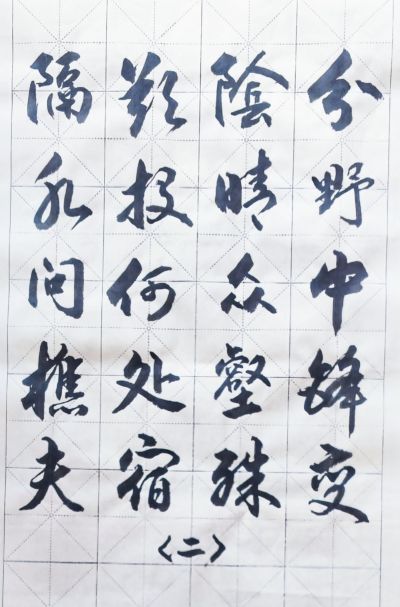 分野中锋变
陰晴众壑殊
欲投何处宿
隔水问樵夫
〈二〉